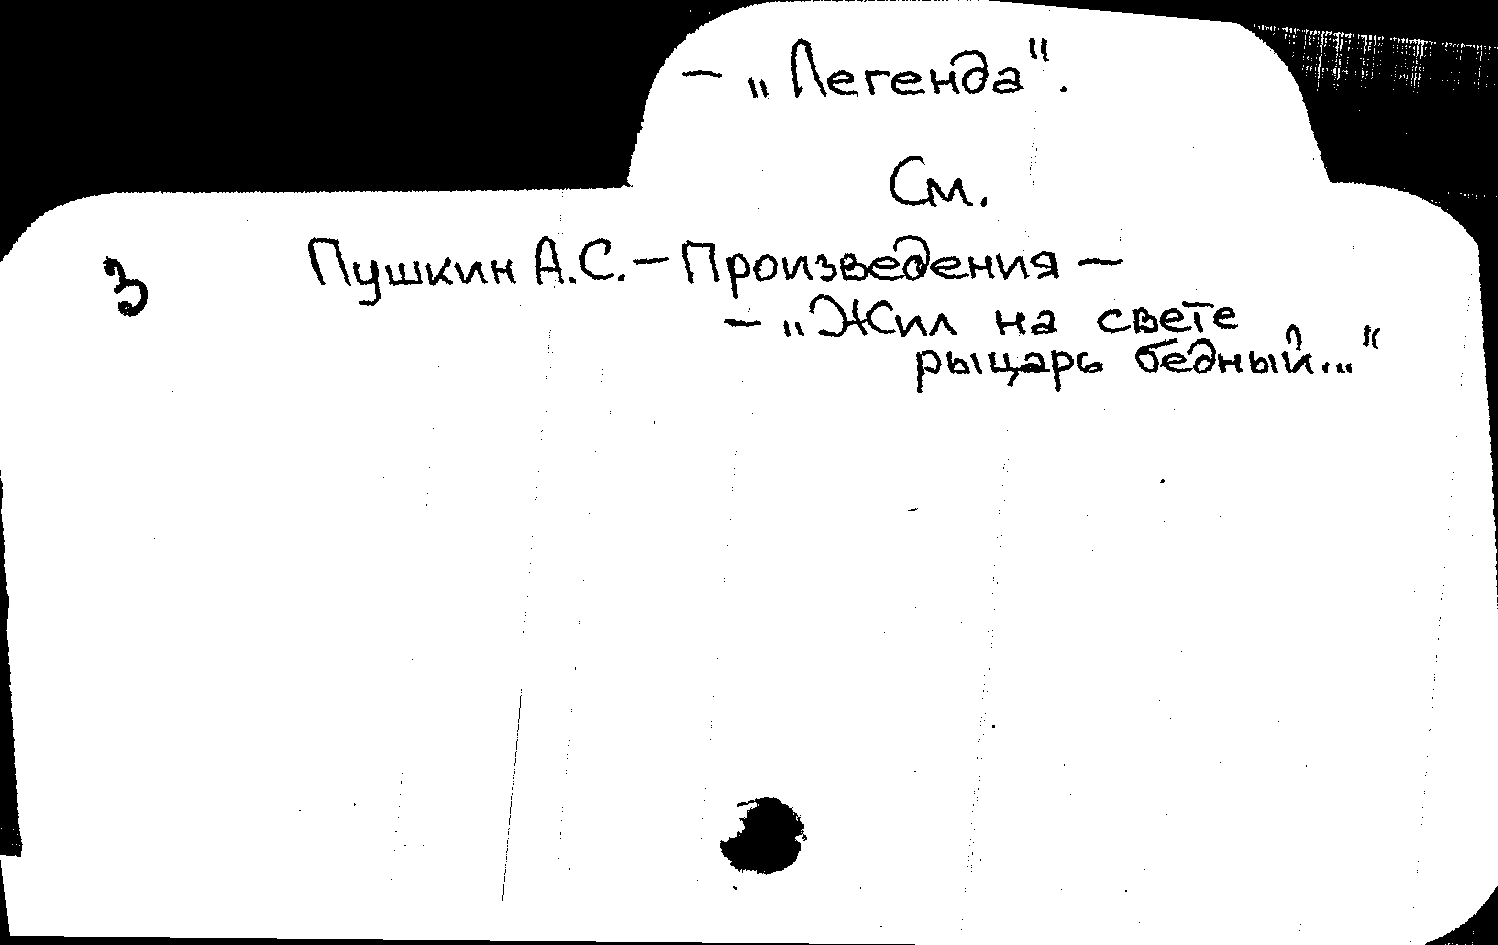 — „Легенда".
См.
3 Пушкин А.С. — Произведения —
— „Жил на свете
рыцарь бедный..."